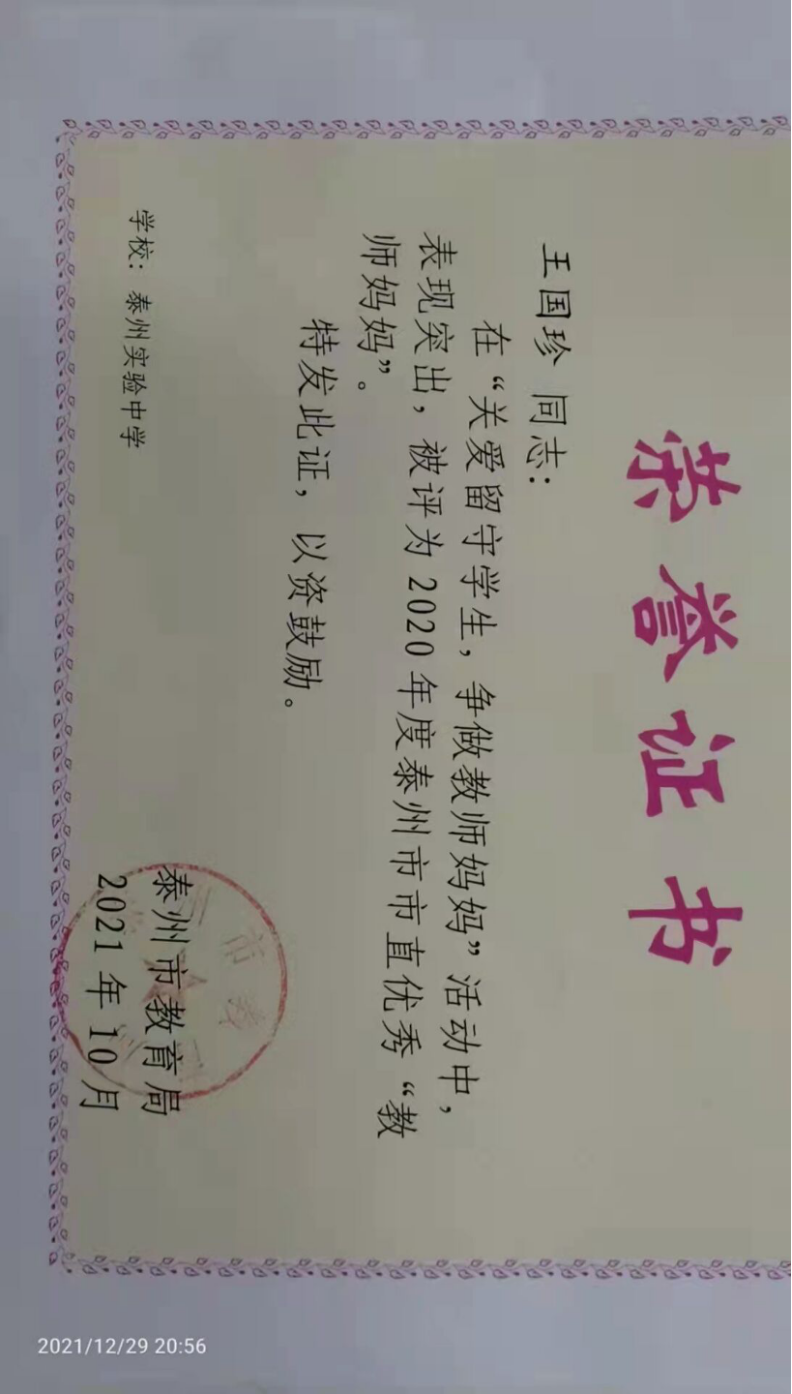 荣誉证书
王国珍 同志：
在“关爱留守学生，争做教师妈妈”活动中，
表现突出，被评为2020年度泰州市市直优秀“教
师妈妈”。
特发此证，以资鼓励。
学校：泰州实验中学
泰州市教育局
2021年10月
2021/12/29 20:56